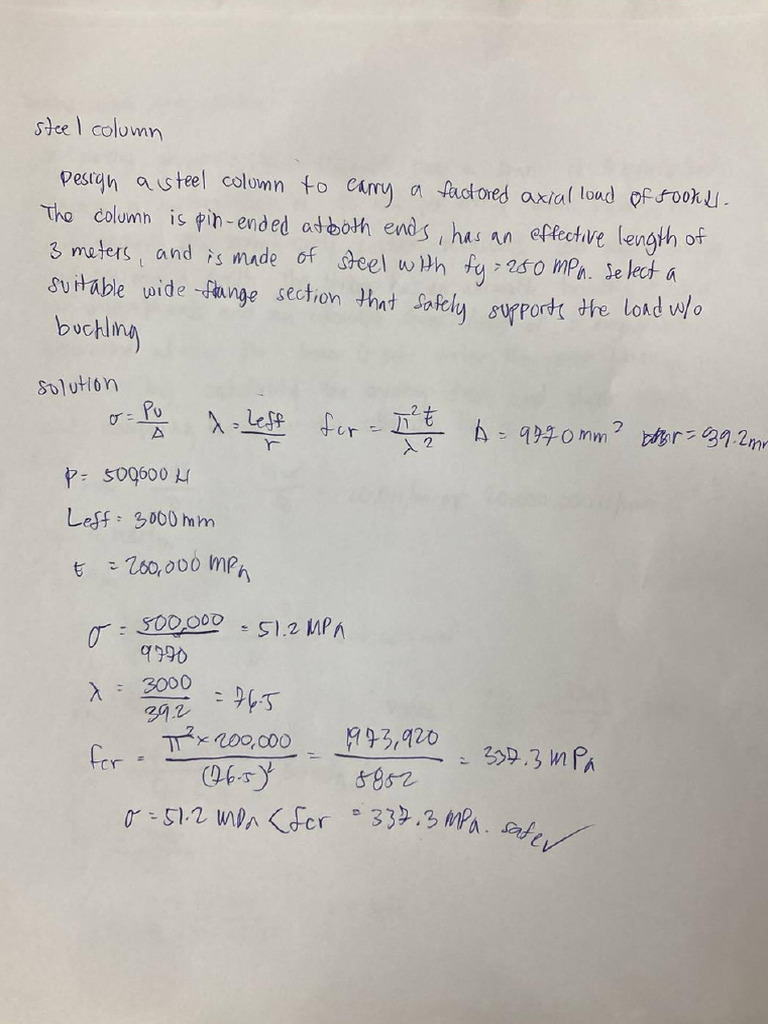 steel column
Design a steel column to carry a factored axial load of 500kN.
The column is pin-ended at both ends, has an effective length of
3 meters, and is made of steel with fy = 250 MPa. Select a
suitable wide-flange section that safely supports the load w/o
buckling
solution
σ = Pu/A λ = Leff/r fcr = π²E/λ² A = 9770 mm² r = 39.2mm
P = 500,000 N
Leff = 3000mm
E = 200,000 MPa
σ = 500,000/9770 = 51.2 MPa
λ = 3000/39.2 = 76.5
fcr = π² × 200,000/(76.5)² = 1,973,920/5852 = 337.3 MPa
σ = 51.2 MPa < fcr = 337.3 MPa. safe ✓